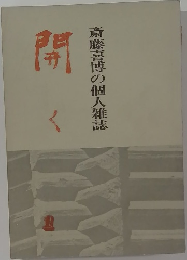 斎藤喜博の個人雑誌
開く
2